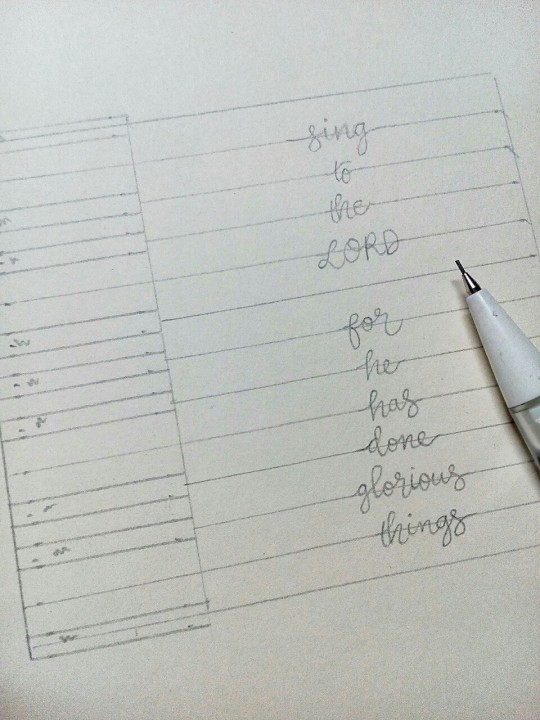 sing
to
the
LORD
for
he
has
done
glorious
things